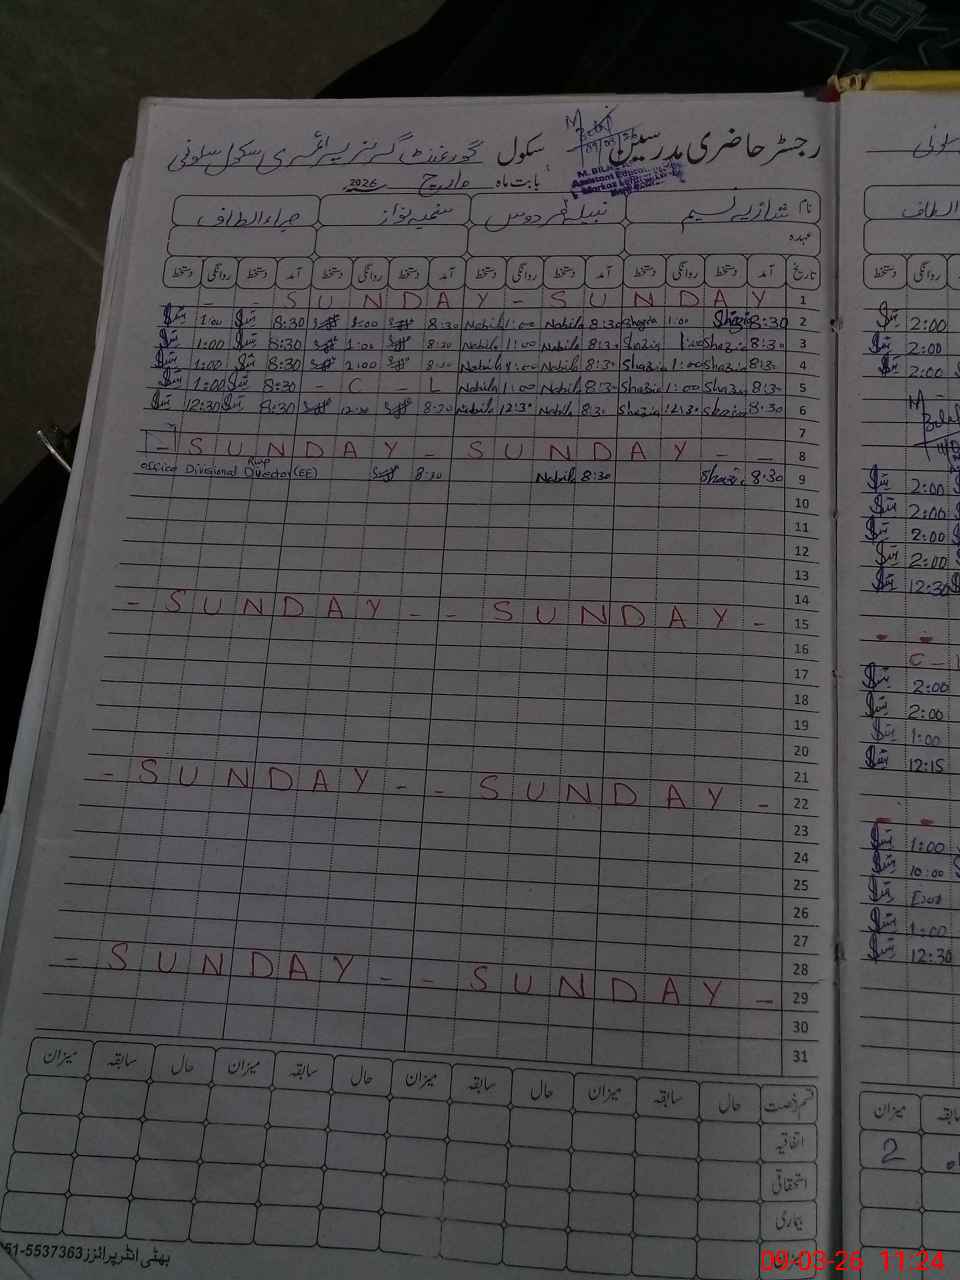 رجسٹر حاضری مدرسین سکول گورنمنٹ گرلز پرائمری سکول سلوئی
M. BILAL
Assistant Education
Markaz
09/03/26
بابت ماہ مارچ 2026
نام شازیہ نسیم نبیلہ فردوس سفینہ نواز حراء الطاف
عہدہ
تاریخ آمد دستخط روانگی دستخط آمد دستخط روانگی دستخط آمد دستخط روانگی دستخط آمد دستخط روانگی دستخط
- - S U N D A Y - S U N D A Y 1
1:00 8:30 1:00 8:30 Nabila 1:00 Nabila 8:30 Shazia 1:00 Shazia 8:30 2
1:00 8:30 1:00 8:30 Nabila 1:00 Nabila 8:30 Shazia 1:00 Shazia 8:30 3
1:00 8:30 1:00 8:30 Nabila 1:00 Nabila 8:30 Shazia 1:00 Shazia 8:30 4
1:00 8:30 - C - L Nabila 1:00 Nabila 8:30 Shazia 1:00 Shazia 8:30 5
12:30 8:30 12:30 8:30 Nabila 12:30 Nabila 8:30 Shazia 12:30 Shazia 8:30 6
7
- S U N D A Y - S U N D A Y - - 8
Office Divisional Director (EE) Rwp 8:30 Nabila 8:30 Shazia 8:30 9
10
11
12
13
14
- S U N D A Y - - S U N D A Y - 15
16
17
18
19
20
21
- S U N D A Y - - S U N D A Y - 22
23
24
25
26
27
28
- S U N D A Y - - S U N D A Y - 29
30
31
قسم رخصت حال سابقہ میزان حال سابقہ میزان حال سابقہ میزان حال سابقہ میزان
اتفاقیہ
استحقاقی
بیماری
بھٹی انٹرپرائزز 051-5537363
الطاف
دستخط روانگی
2:00
2:00
2:00
2:00
2:00
2:00
2:00
12:30
C -
2:00
2:00
1:00
12:15
1:00
10:00
1:00
12:30
میزان سابقہ
2
09-03-26 11:24